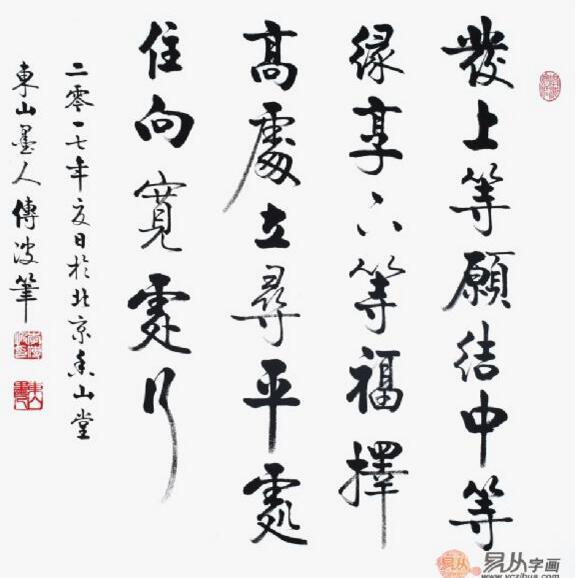 發上等願結中等
緣享下等福擇
高處立尋平處
住向寬處行
二零一七年夏日於北京香山堂
東山墨人傳波筆
易从字画
www.yczihua.com